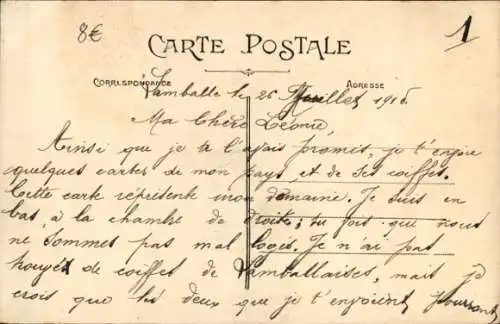 8€
1
CARTE POSTALE
CORRESPONDANCE
ADRESSE
Lamballe le 26 Juillet 1915.
Ma Chère Léonie,
Ainsi que je te l'avais promis, je t'envoie
quelques cartes de mon pays et de ses coiffes.
Cette carte représente mon domaine. Je suis en
bas, à la chambre de droite; tu vois que nous
ne sommes pas mal logés. Je n'ai pas
trouvés de coiffet de Lamballaises, mais je
crois que les deux que je t'envoient pourront